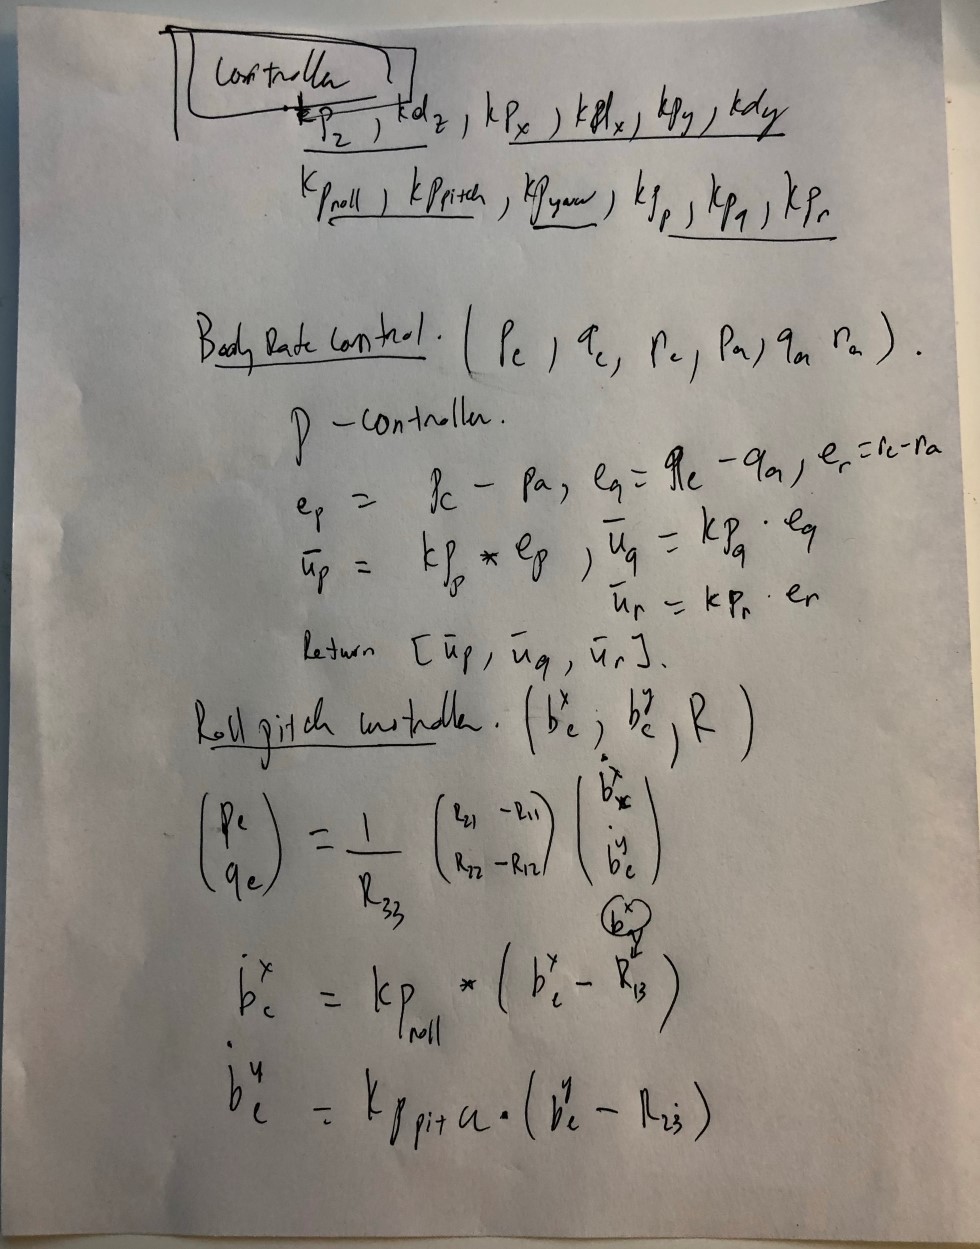 Controller
kp_z, kd_z, kp_x, kd_x, kp_y, kd_y
kp_roll, kp_pitch, kp_yaw, kp_p, kp_q, kp_r
Body Rate Control. (p_c, q_c, r_c, p_a, q_a r_a).
P - controller.
e_p = p_c - p_a, e_q = q_c - q_a, e_r = r_c - r_a
ū_p = kp_p * e_p, ū_q = kp_q · e_q
ū_r = kp_r · e_r
Return [ū_p, ū_q, ū_r].
Roll pitch controller. (b^x_c, b^y_c, R)
(p_c q_c) = 1/R_33 (R_21 -R_11 R_22 -R_12) (ḃ^x_c ḃ^y_c)
b^x
ḃ^x_c = kp_roll * (b^x_c - R_13)
ḃ^y_c = kp_pitch · (b^y_c - R_23)